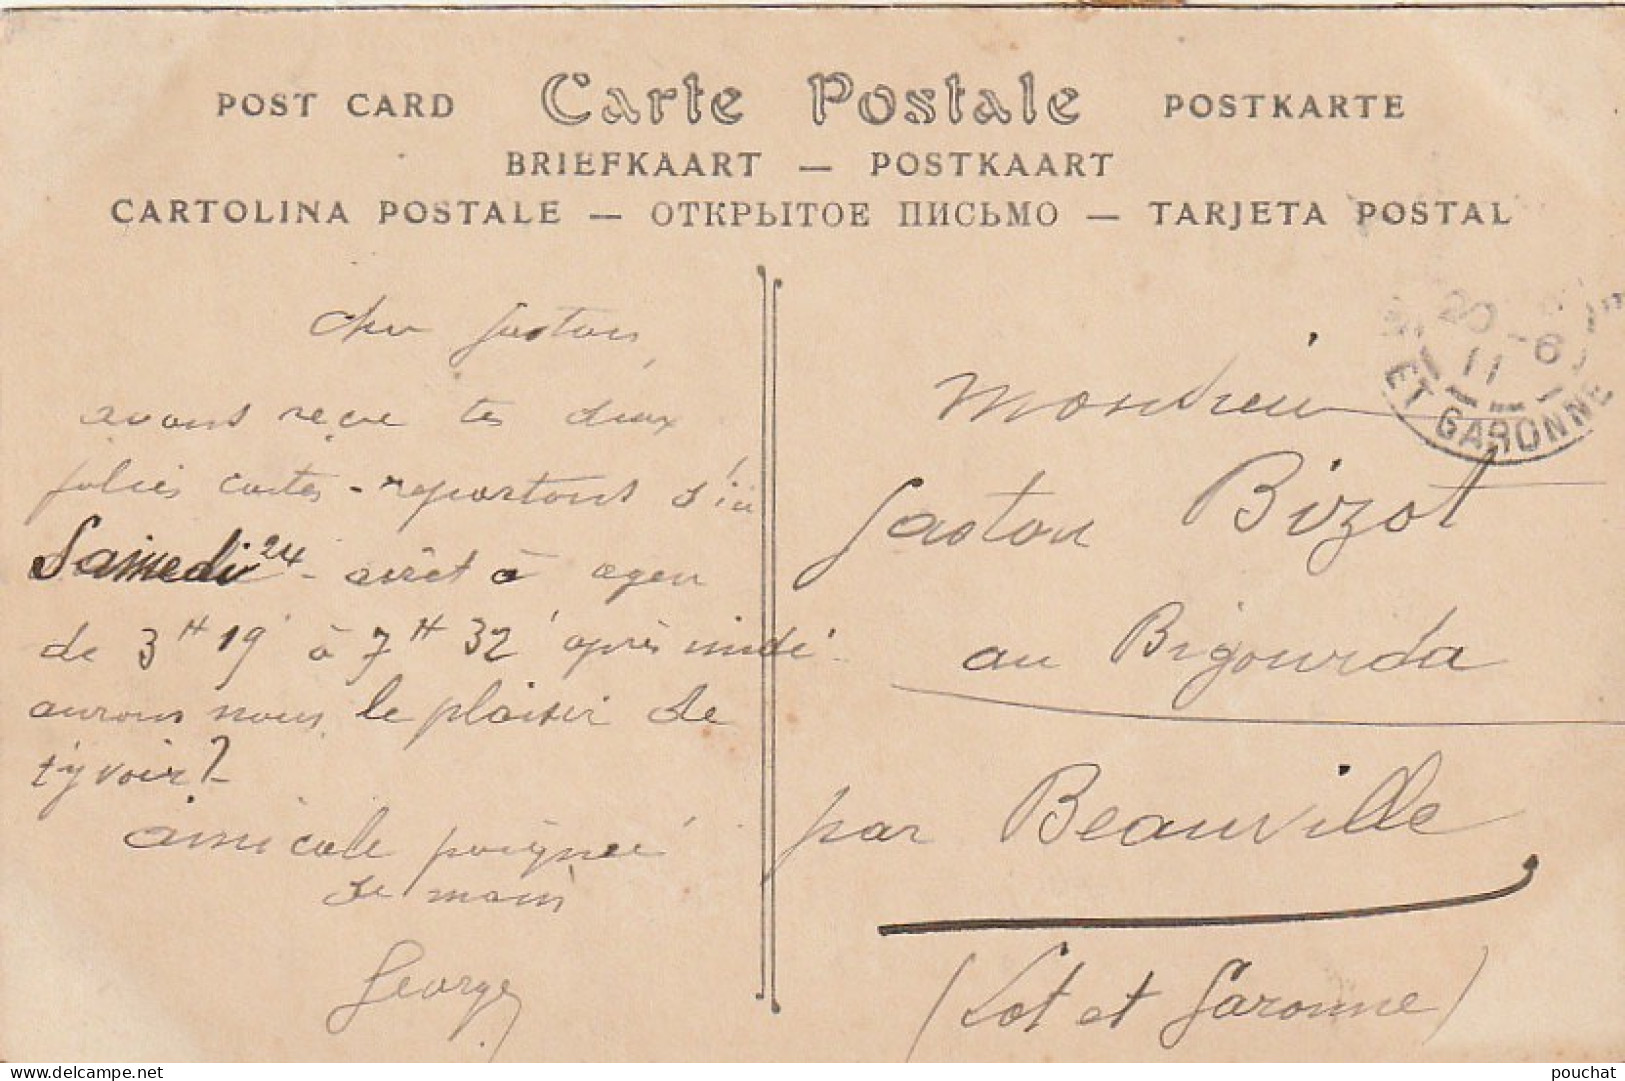 POST CARD Carte Postale POSTKARTE
BRIEFKAART — POSTKAART
CARTOLINA POSTALE — ОТКРЫТОЕ ПИСЬМО — TARJETA POSTAL
cher Gaston,
avons reçue tes deux
jolies cartes - repartons d'ici
Samedi 24 - arrêt à agen
de 3 H 19' à 7 H 32' après midi -
aurons nous le plaisir de
t'y voir?
amicale poignée
de main
George
20 - 6
11
ET GARONNE
Monsieur
Gaston Bizot
au Bigourda
par Beauville
(Lot et Garonne)
© pouchat
www.delcampe.net